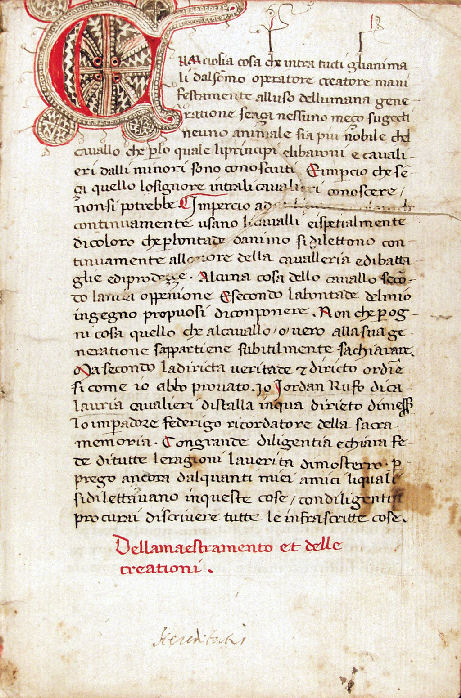 cosa che intra tucti glianima
li dalsomo operatore creatore mani
festamente alluso dellumana gene
ratione senza nessuno meço sugecti
neuno animale sia piu nobile che
cavallo che plo quale liprincipi elibaroni e cavali-
eri dalli minori sono conosciuti. Eimpcio che se
ça quello losignore intrali cavalieri conoscere
nonsi potrebbe. Impercio
continuamente usano li cavalli eispetialmente
dicoloro che plontade danimo si dilettono con-
tinuamente allonore della cavalleria edibatta
glie ediprodezze. Alcuna cosa dello cavallo seco
to lamia oppenione Esecondo labontade delmio
ingegno propuosi dicomponere. Non che pog-
ni cosa quello che alcavallo overo allasua ge
neratione sappartiene subtilmente sachiarare.
Ma secondo ladiricta veritade et diricto ordie
si come io abbo provato. Io Jordan Rufo dica
lauria cavalieri distalla inqua dirieto dimess
lo imperadore federigo ricordatore della sacra
memoria. Congrande diligentia echiara fe-
de ditutte leragioni laverita dimosterro. p
prego ancora dalquanti miei amici liquali
sidilettavano inqueste cose, condiligentia
procurai discrivere tutte le infrascritte cose.
Dellamaestramento et delle
creationi.